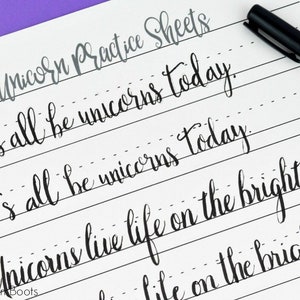 Unicorn Practice Sheets
s all be unicorns today.
's all be unicorns today.
Unicorns live life on the bright
life on the brig
Boots